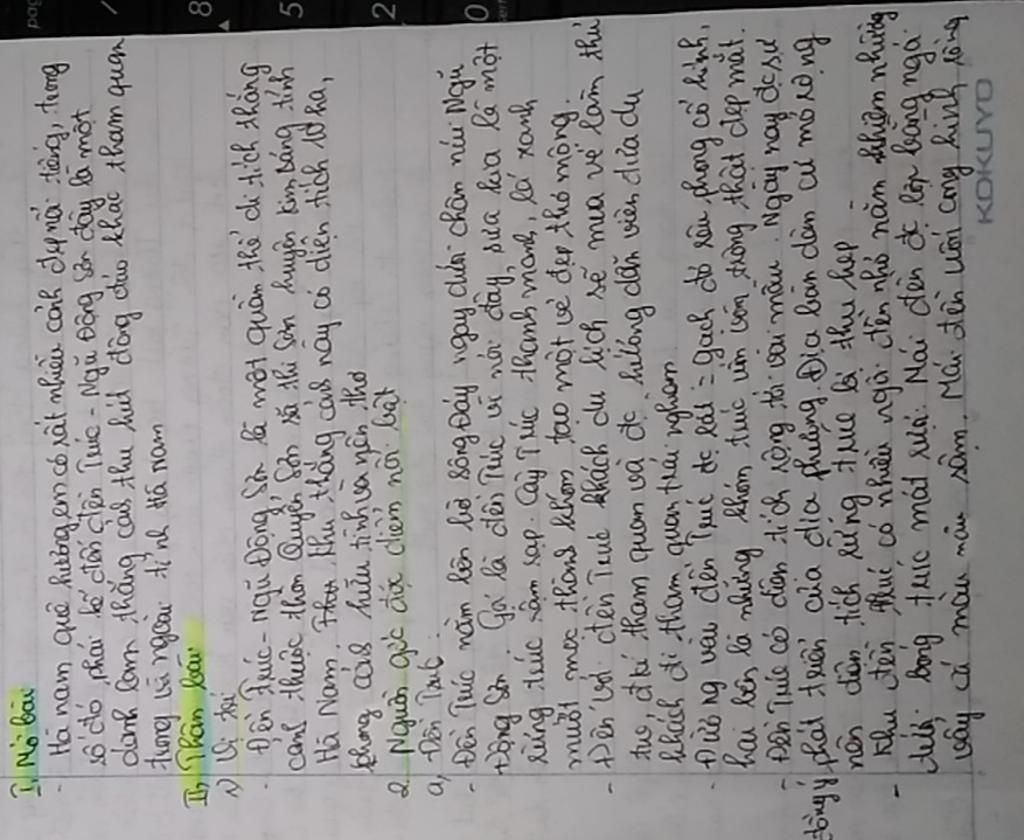 I, Mở bài
- Hà nam quê hương em có rất nhiều cảnh đẹp nổi tiếng, trong
số đó phải kể đến đền Trúc - Ngũ Động Sơn đây là một
danh lam thắng cảnh thu hút đông đảo khách tham quan
trong và ngoài tỉnh Hà Nam
II, Thân bài
1) Vị trí
- Đền Trúc - Ngũ Động Sơn là một quần thể di tích thắng
cảnh thuộc thôn Quyển Sơn xã thi Sơn huyện Kim bảng tỉnh
Hà Nam. Khu thắng cảnh này có diện tích 10 ha,
phong cảnh hữu tình và nên thơ
2. Nguồn gốc đặc điểm nổi bật
a, Đền Trúc
- Đền Trúc nằm bên bờ sông Đáy ngay dưới chân núi Ngũ
Động Sơn. Gọi là đền Trúc vì nơi đây, xưa kia là một
rừng trúc rậm rạp. Cây Trúc thanh mảnh, lá xanh
mướt mọc thành khóm tạo một vẻ đẹp thơ mộng.
- Đến với đền Trúc khách du lịch sẽ mua vé làm thủ
tục để tham quan và đc hướng dẫn viên đưa du
khách đi tham quan trải nghiệm
- Đường vào đền Trúc đc lát = gạch đỏ rêu phong cổ kính,
hai bên là những khóm trúc uốn vòn trông thật đẹp mắt.
- Đền Trúc có diện tích rộng tới vài mẫu. Ngày nay đc sự
đồng ý phát triển của địa phương. Địa bàn dân cư mở rộng
nên diện tích rừng trúc bị thu hẹp
- Khu đền Trúc có nhiều ngôi đền nhỏ nằm khiêm nhường
dưới bóng trúc mát rượi. Mái đền đc lợp bằng ngói
vẩy cá màu nâu sậm. Mái đền uốn cong hình rồng
KOKUYO
pag
8
5
2
0